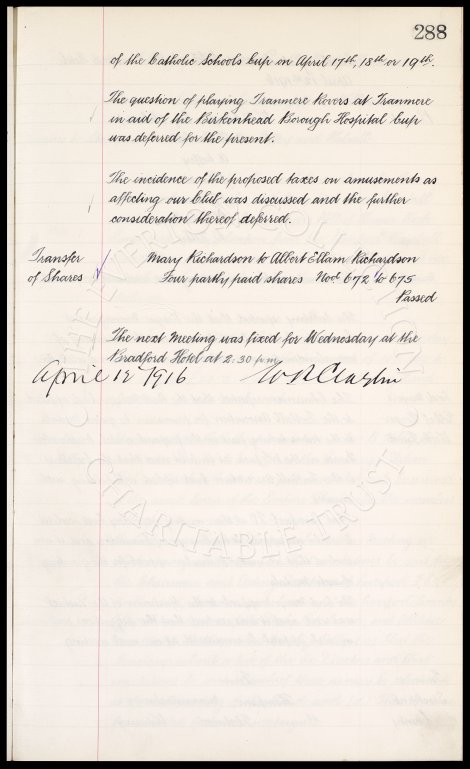 288
of the Catholic Schools Cup on April 17th, 18th or 19th.
The question of playing Tranmere Rovers at Tranmere
in aid of the Birkenhead Borough Hospital Cup
was deferred for the present.
The incidence of the proposed taxes on amusements as
affecting our Club was discussed and the further
consideration thereof deferred.
Transfer
of Shares
Mary Richardson to Albert Ellam Richardson
Four partly paid shares Nos 672 to 675
Passed
The next Meeting was fixed for Wednesday at the
Bradford Hotel at 2:30 p.m.
April 12th 1916
THE EVERTON COLLECTION
CHARITABLE TRUST